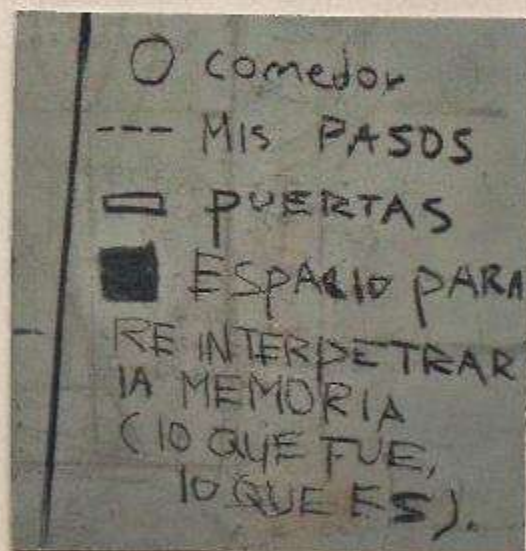 comedor
MIS PASOS
PUERTAS
ESPACIO PARA
RE INTERPETRAR
lA MEMORIA
(lO QUE FUE,
lO QUE ES).